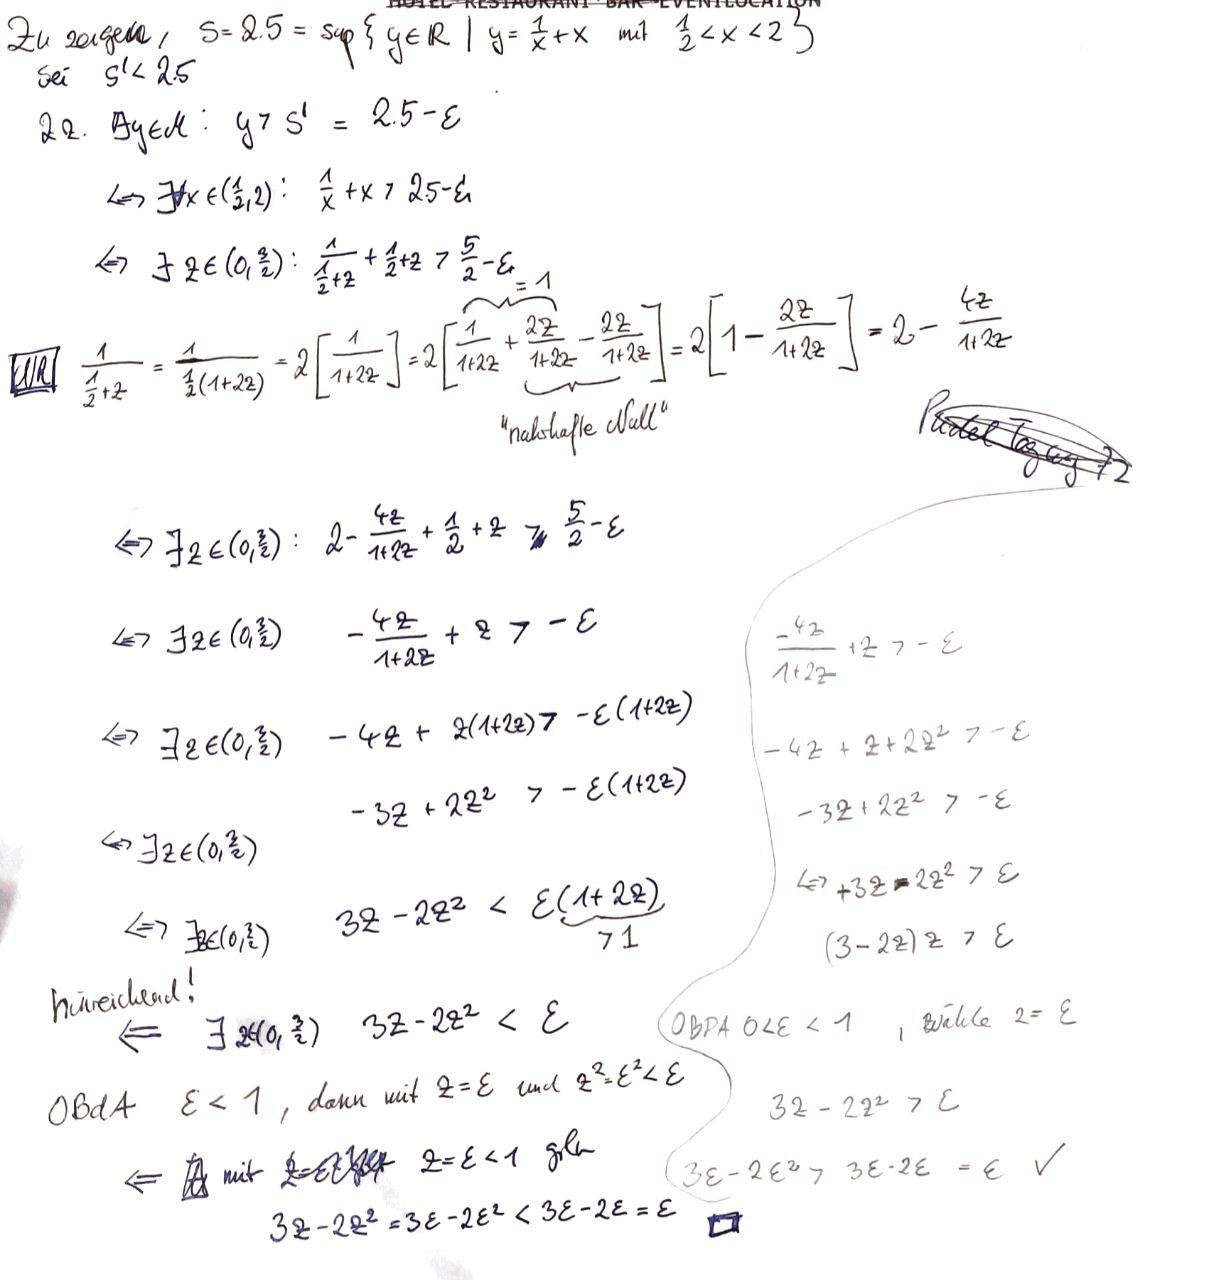 HOTEL RESTAURANT BAR EVENTLOCATION
Zu zeigen, S = 2.5 = sup { y ∈ ℝ | y = 1/x + x mit 1/2 < x < 2 }
Sei S' < 2.5
zz. ∃y∈M : y > S' = 2.5 - ε
⇔ ∃x ∈ (1/2, 2) : 1/x + x > 2.5 - ε
⇔ ∃ z ∈ (0, 3/2) : 1/(1/2 + z) + 1/2 + z > 5/2 - ε
= 1
NR 1/(1/2 + z) = 1/(1/2 (1+2z)) = 2[1/(1+2z)] = 2[1/(1+2z) + 2z/(1+2z) - 2z/(1+2z)] = 2[1 - 2z/(1+2z)] = 2 - 4z/(1+2z)
"nahrhafte Null"
⇔ ∃ z ∈ (0, 3/2) : 2 - 4z/(1+2z) + 1/2 + z > 5/2 - ε
⇔ ∃ z ∈ (0, 3/2) - 4z/(1+2z) + z > - ε
⇔ ∃ z ∈ (0, 3/2) - 4z + z(1+2z) > - ε(1+2z)
- 3z + 2z² > - ε(1+2z)
⇔ ∃ z ∈ (0, 3/2)
⇔ ∃z∈(0, 3/2) 3z - 2z² < ε(1+2z)
> 1
hinreichend!
⇐ ∃ z∈(0, 3/2) 3z - 2z² < ε
OBdA ε < 1, dann mit z = ε und z² = ε² < ε
⇐ mit z = ε < 1 gilt
3z - 2z² = 3ε - 2ε² < 3ε - 2ε = ε □
-4z/(1+2z) + z > - ε
- 4z + z + 2z² > - ε
- 3z + 2z² > - ε
⇔ +3z - 2z² > ε
(3 - 2z) z > ε
OBDA 0 < ε < 1, Wähle z = ε
3z - 2z² > ε
3ε - 2ε² > 3ε - 2ε = ε ✓